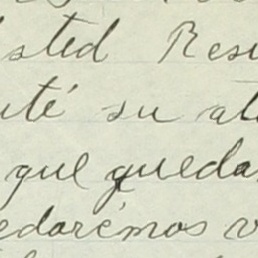 sted Res
uté su at
que queda
edarémos v